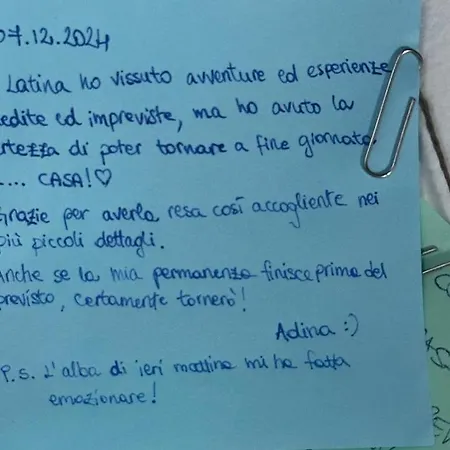 07.12.2024
Latina ho vissuto avventure ed esperienze
edite ed impreviste, ma ho avuto la
rtezza di poter tornare a fine giornata
.... CASA!♡
Grazie per averla resa così accogliente nei
più piccoli dettagli.
Anche se la mia permanenza finisce prima del
previsto, certamente tornerò!
Adina :)
P.s. L'alba di ieri mattina mi ha fatta
emozionare!